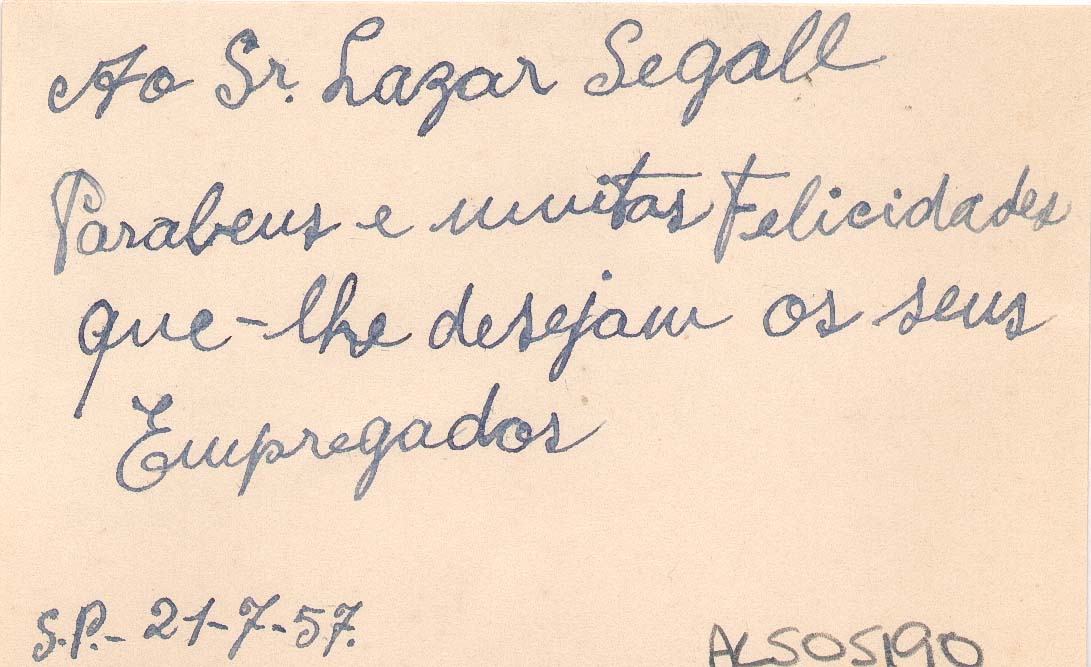 Ao Sr. Lazar Segall
Parabens e muitas Felicidades
que-lhe desejam os seus
Empregados
S.P.- 21-7-57.
ALS05190